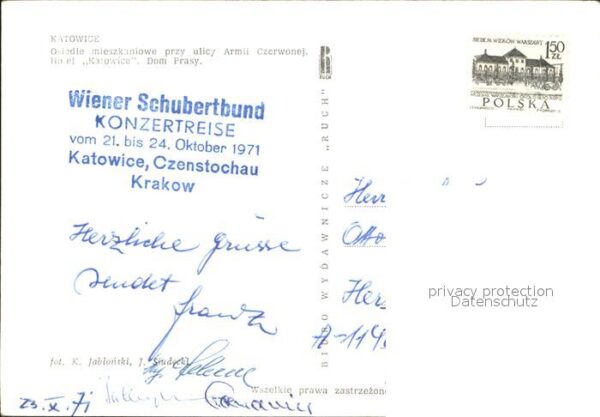 KATOWICE
Osiedle mieszkaniowe przy ulicy Armii Czerwonej.
Hotel „Katowice”. Dom Prasy.
Wiener Schubertbund
KONZERTREISE
vom 21. bis 24. Oktober 1971
Katowice, Czenstochau
Krakow
Herzliche Grüsse
sendet
Franz
fot. K. Jabłoński, J. Siudecki
Wszelkie prawa zastrzeżone
23. X. 71
BIURO WYDAWNICZE „RUCH”
SIEDEM WIEKÓW WARSZAWY
1,50
ZŁ
POLSKA
Herr
Otto
Her
A-114
privacy protection
Datenschutz